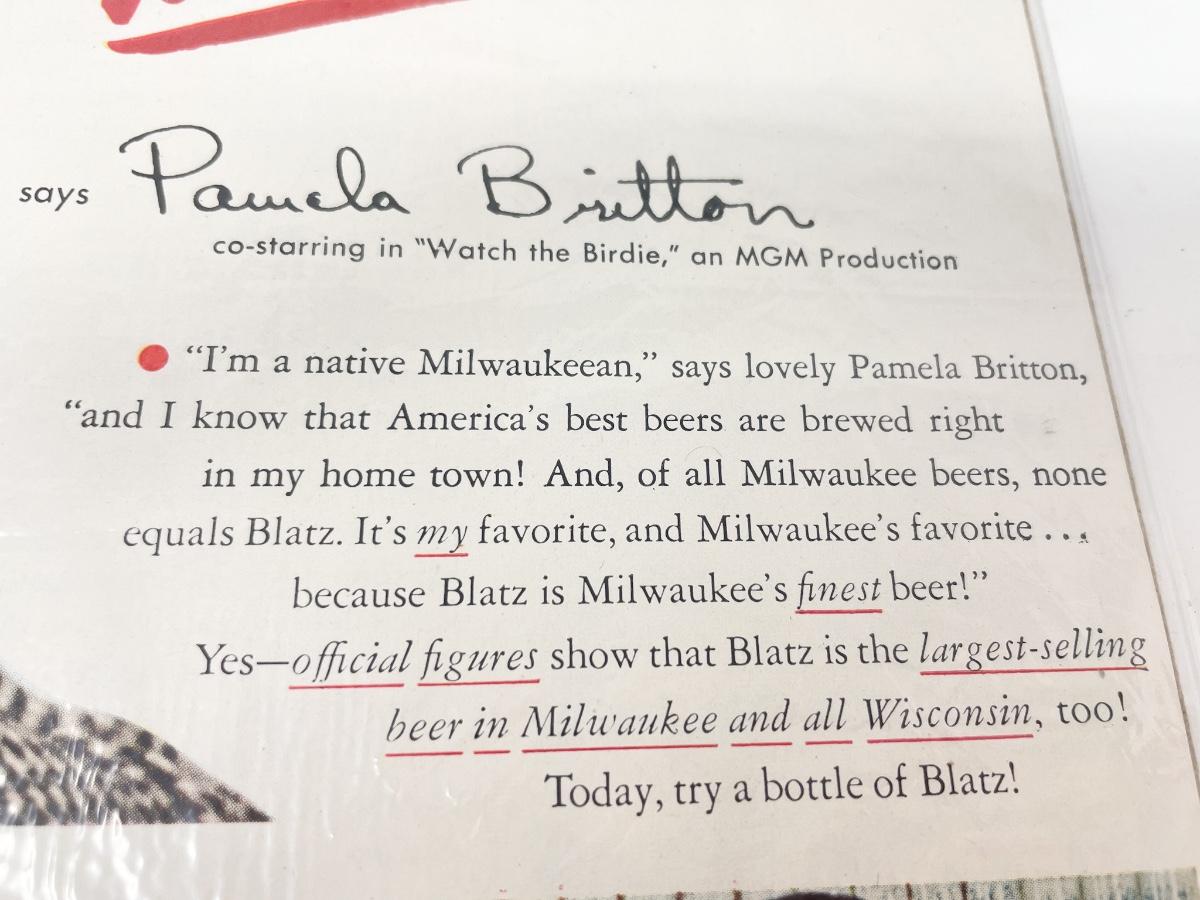 says Pamela Britton
co-starring in "Watch the Birdie," an MGM Production
• “I’m a native Milwaukeean,” says lovely Pamela Britton,
“and I know that America’s best beers are brewed right
in my home town! And, of all Milwaukee beers, none
equals Blatz. It’s my favorite, and Milwaukee’s favorite ...
because Blatz is Milwaukee’s finest beer!”
Yes—official figures show that Blatz is the largest-selling
beer in Milwaukee and all Wisconsin, too!
Today, try a bottle of Blatz!